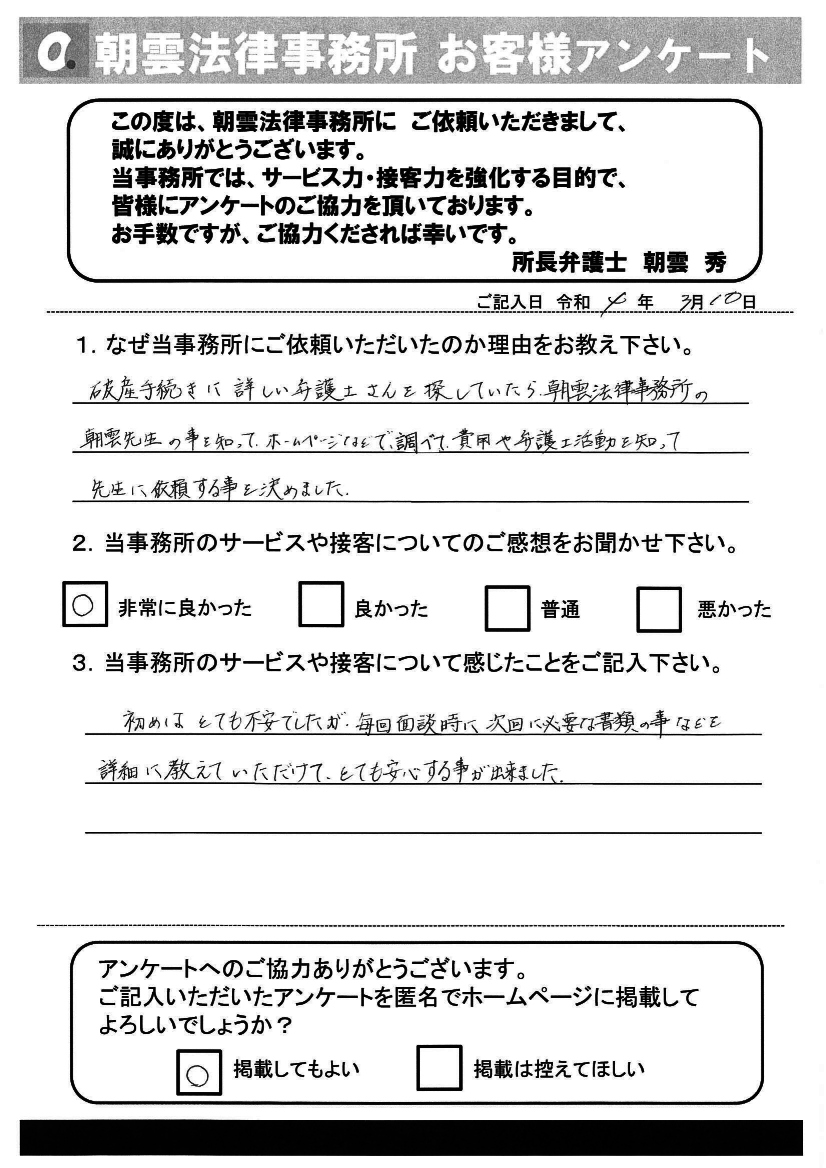 a. 朝雲法律事務所 お客様アンケート
この度は、朝雲法律事務所に ご依頼いただきまして、
誠にありがとうございます。
当事務所では、サービス力・接客力を強化する目的で、
皆様にアンケートのご協力を頂いております。
お手数ですが、ご協力くだされば幸いです。
所長弁護士 朝雲 秀
ご記入日 令和 4 年 3月10日
1. なぜ当事務所にご依頼いただいたのか理由をお教え下さい。
破産手続きに詳しい弁護士さんを探していたら、朝雲法律事務所の
朝雲先生の事を知って、ホームページなどで、調べて、費用や弁護士活動を知って
先生に依頼する事を決めました。
2. 当事務所のサービスや接客についてのご感想をお聞かせ下さい。
○ 非常に良かった 良かった 普通 悪かった
3. 当事務所のサービスや接客について感じたことをご記入下さい。
初めはとても不安でしたが、毎回面談時に次回に必要な書類の事などを
詳細に教えていただけて、とても安心する事が出来ました。
アンケートへのご協力ありがとうございます。
ご記入いただいたアンケートを匿名でホームページに掲載して
よろしいでしょうか？
○ 掲載してもよい 掲載は控えてほしい